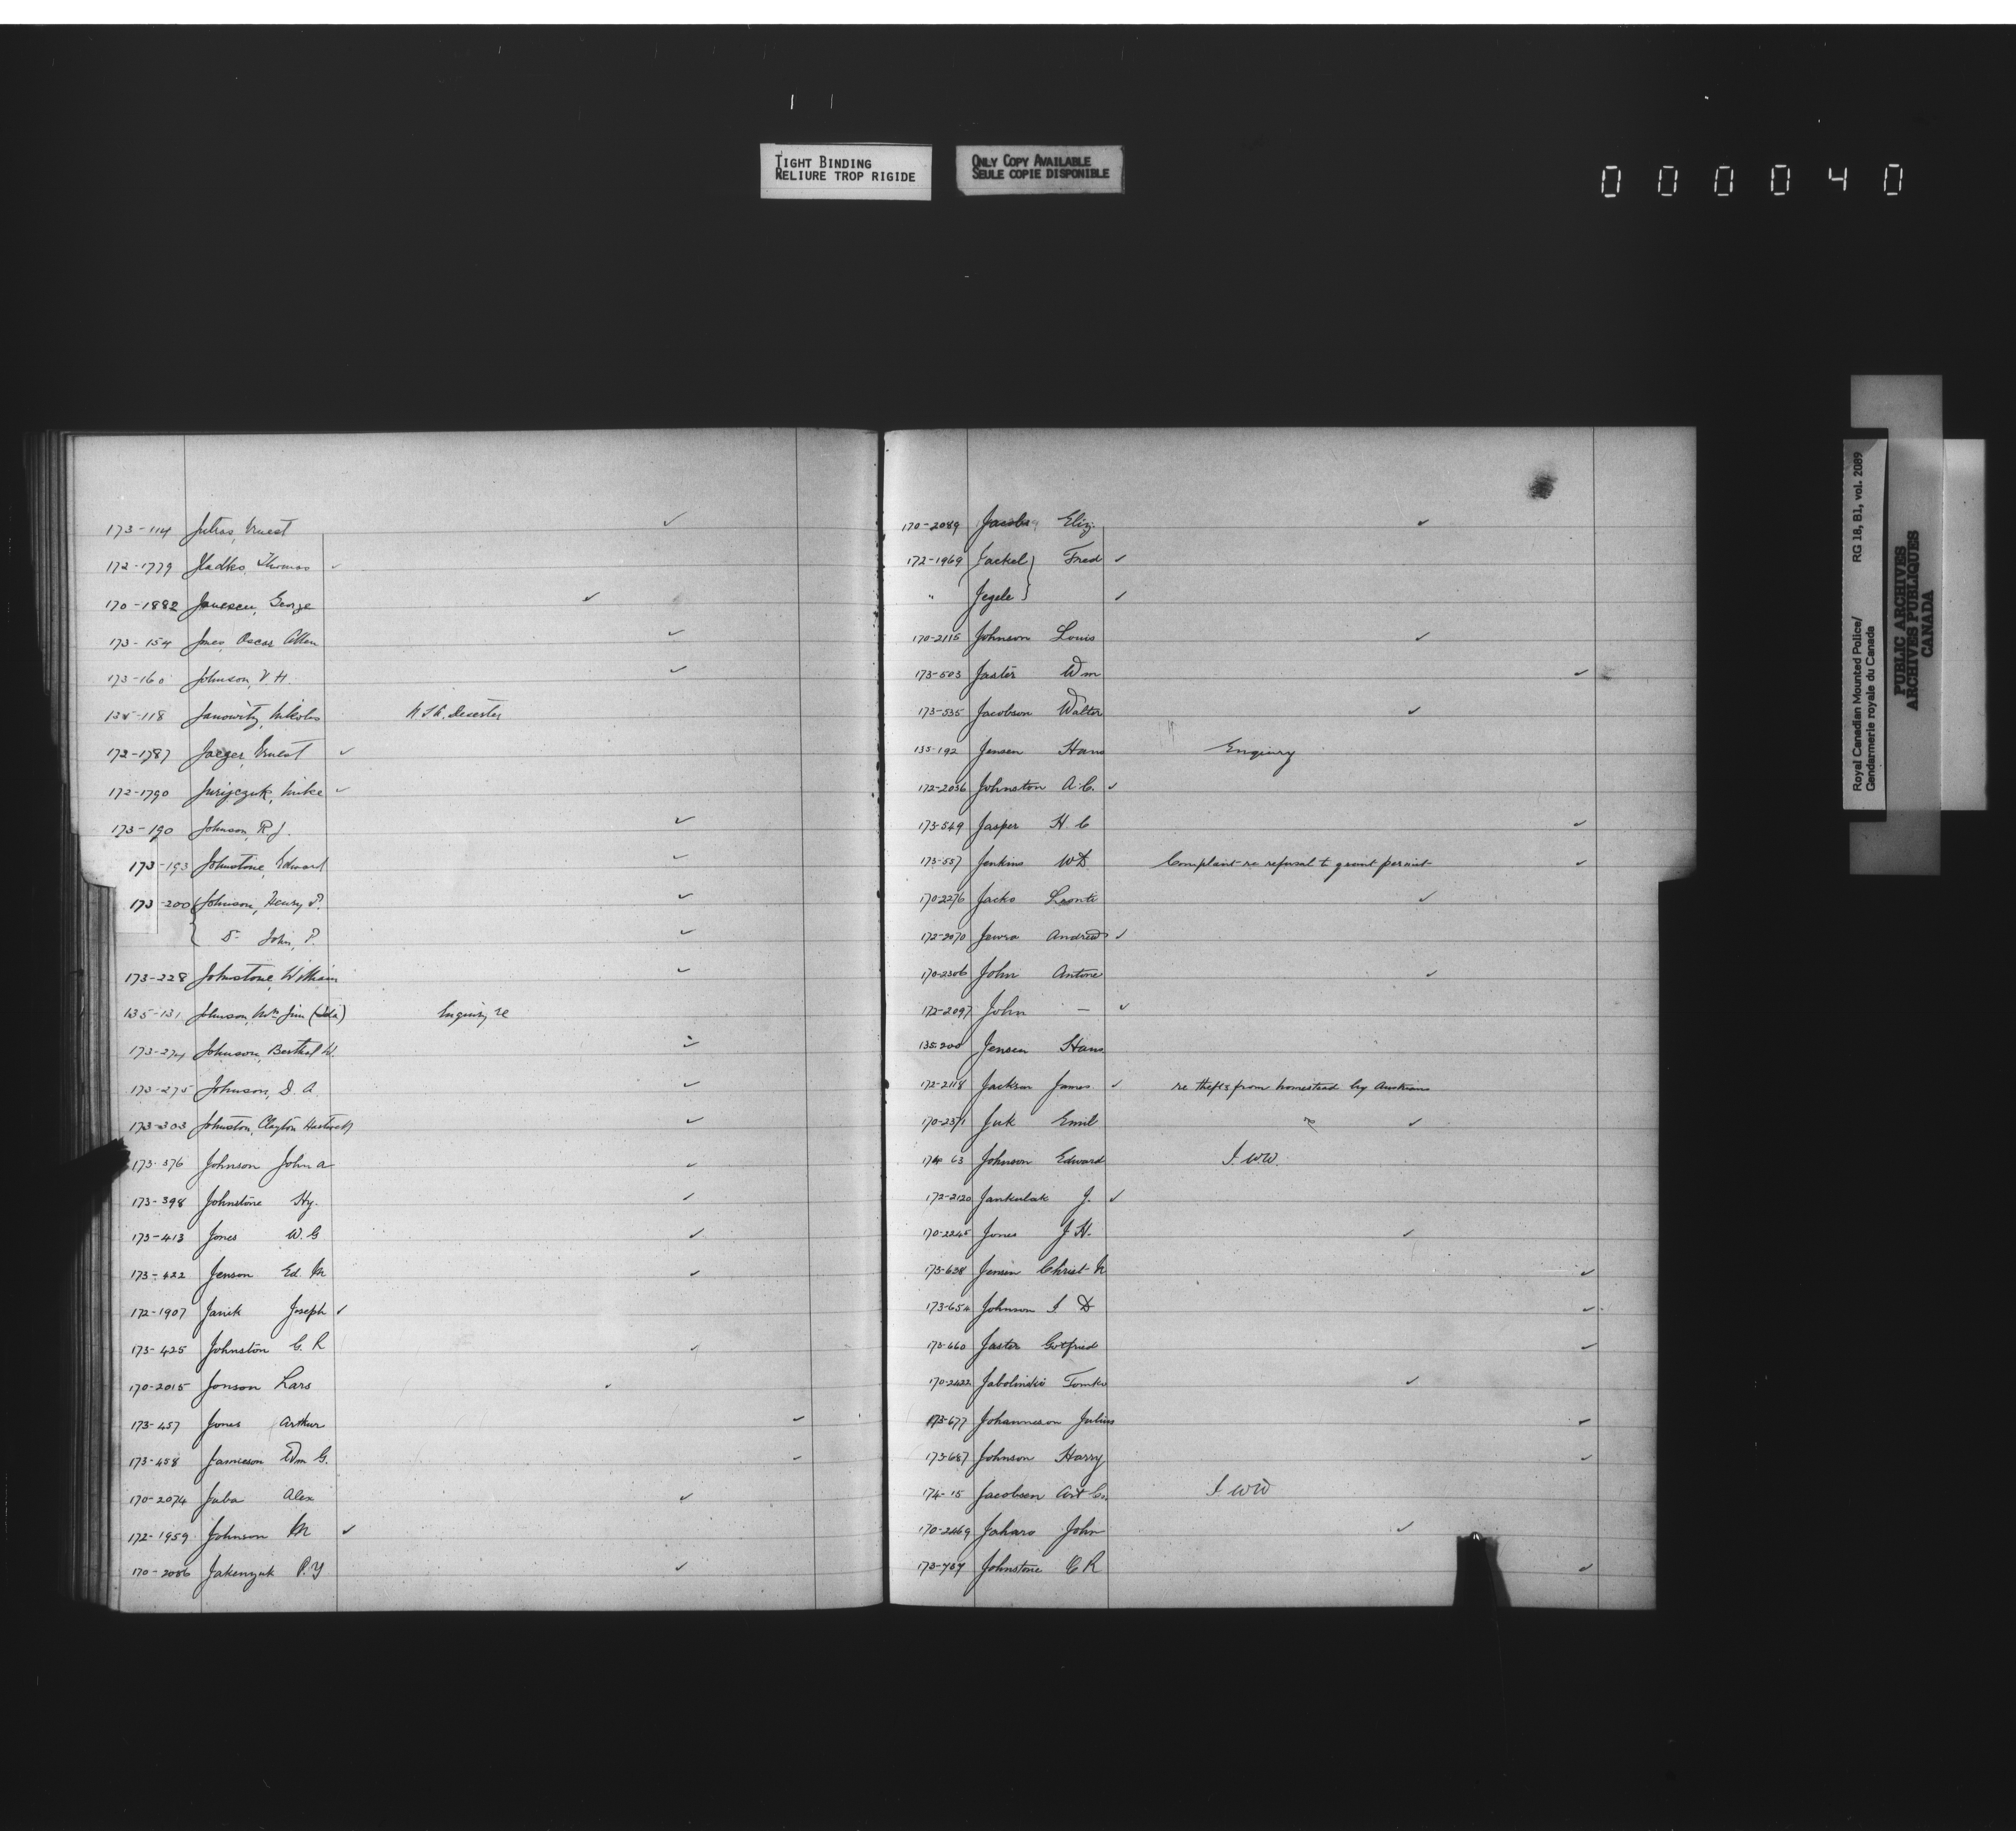 TIGHT BINDING
RELIURE TROP RIGIDE
ONLY COPY AVAILABLE
SEULE COPIE DISPONIBLE
000040
173-114 Jutras, Ernest ✓
172-1779 Hladko, Thomas ✓
170-1882 Janescu, George ✓
173-154 Jones, Oscar Allen ✓
173-160 Johnson, V. H. ✓
135-118 Janowitz, Nikolas Deserter
172-1787 Jaeger, Ernest ✓
172-1790 Jurijczuk, Mike ✓
173-190 Johnson, R. J. ✓
173-193 Johnstone, Edward ✓
173-200 Johnson, Henry P. ✓
John, P. ✓
173-228 Johnstone, William ✓
135-131 Johnson, Mrs Jim (Ida) Enquiry re
173-274 Johnson, Berthel W. ✓
173-275 Johnson, D. A. ✓
173-303 Johnston, Clayton ✓
173-376 Johnson John A ✓
173-398 Johnstone Hy. ✓
173-413 Jones W. G ✓
173-422 Jenson Ed. M ✓
172-1907 Janik Joseph ✓
173-425 Johnston G. R ✓
170-2015 Jonson Lars
173-457 Jones Arthur ✓
173-458 Jamieson Wm G. ✓
170-2074 Juba Alex ✓
172-1959 Johnson M ✓
170-2086 Jakenyuk P. Y ✓
170-2089 Jacobs Eliz. ✓
172-1969 Jackel } Fred ✓
" Jegele } ✓
170-2115 Johnson Louis ✓
173-503 Jaster Wm ✓
173-535 Jacobson Walter ✓
135-192 Jensen Hans Enquiry
172-2036 Johnston A. C. ✓
173-549 Jasper H. C ✓
173-557 Jenkins W D Complaint re refusal to grant permit ✓
170-2276 Jacko Leonti ✓
172-2070 Jewra Andrew ✓
170-2306 John Antone ✓
172-2097 John — ✓
135-200 Jensen Hans
172-2118 Jackson James ✓ re thefts from homestead by Austrians
170-2371 Juk Emil ✓
174 63 Johnson Edward I. W.W.
172-2120 Jankulak J. ✓
170-2245 Jones J. H. ✓
173-638 Jensen Christ N ✓
173-654 Johnson I D ✓
173-660 Jaster Gotfried ✓
170-2422 Jabolinski Tomko ✓
173-677 Johanneson Julius ✓
173-687 Johnson Harry ✓
174-15 Jacobsen Art I. W W
170-2469 Jaharo John ✓
173-737 Johnstone C R ✓
Royal Canadian Mounted Police/
Gendarmerie royale du Canada
RG 18, B1, vol. 2089
PUBLIC ARCHIVES
ARCHIVES PUBLIQUES
CANADA